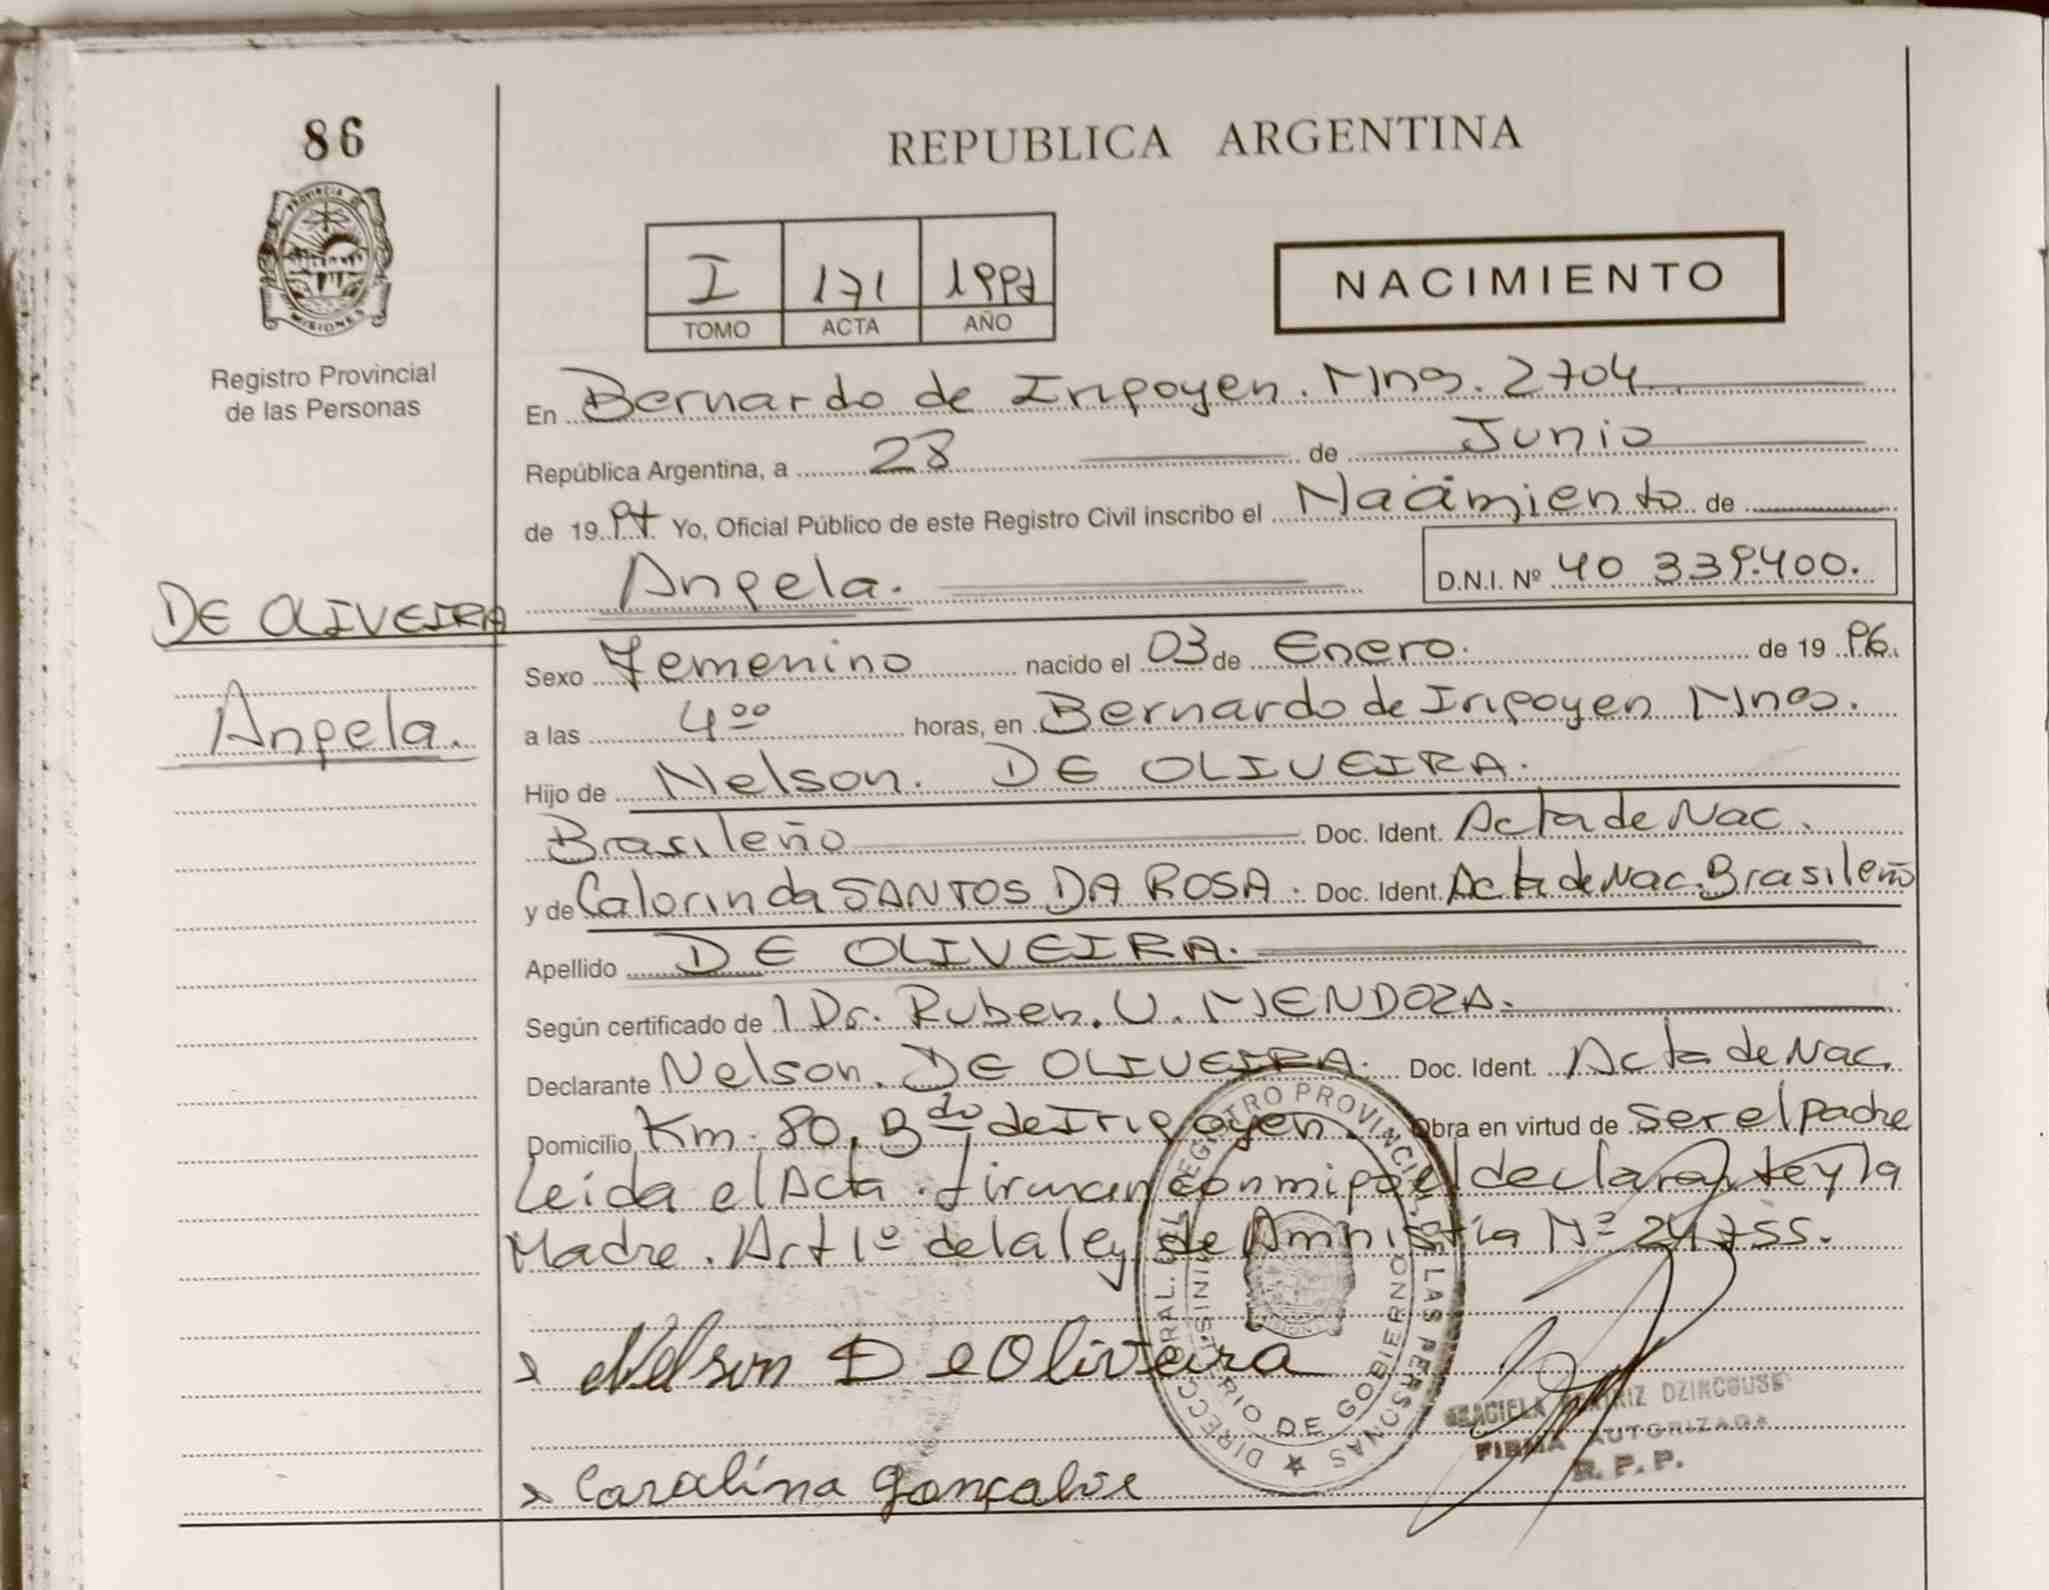 86
REPUBLICA ARGENTINA
PROVINCIA DE
MISIONES
I 171 1997
TOMO ACTA AÑO
NACIMIENTO
Registro Provincial
de las Personas
En Bernardo de Irigoyen. Mnes. 2704
República Argentina, a 28 de Junio
de 19 97 Yo, Oficial Público de este Registro Civil inscribo el Nacimiento de
Angela. D.N.I. Nº 40 339.400.
DE OLIVEIRA
Angela.
Sexo Femenino nacido el 03 de Enero. de 19 96.
a las 4ºº horas, en Bernardo de Irigoyen Mnes.
Hijo de Nelson. DE OLIVEIRA.
Brasileño Doc. Ident. Acta de Nac.
y de Calorinda SANTOS DA ROSA. Doc. Ident. Acta de Nac. Brasileño
Apellido DE OLIVEIRA.
Según certificado de 1 Dr. Ruben. U. MENDOZA.
Declarante Nelson. DE OLIVEIRA. Doc. Ident. Acta de Nac.
Domicilio Km. 80, Bdo de Irigoyen. Obra en virtud de ser el padre
Leída el Acta. firman conmigo el declarante y la
Madre. Art 1º de la ley de Amnistía Nº 24755.
Nelson De Oliveira
DIRECC. GRAL. DEL REGISTRO PROVINCIAL DE LAS PERSONAS
MINISTERIO DE GOBIERNO
MISIONES
GRACIELA BEATRIZ DZINCOUSE
FIRMA AUTORIZADA
R. P. P.
Caralina